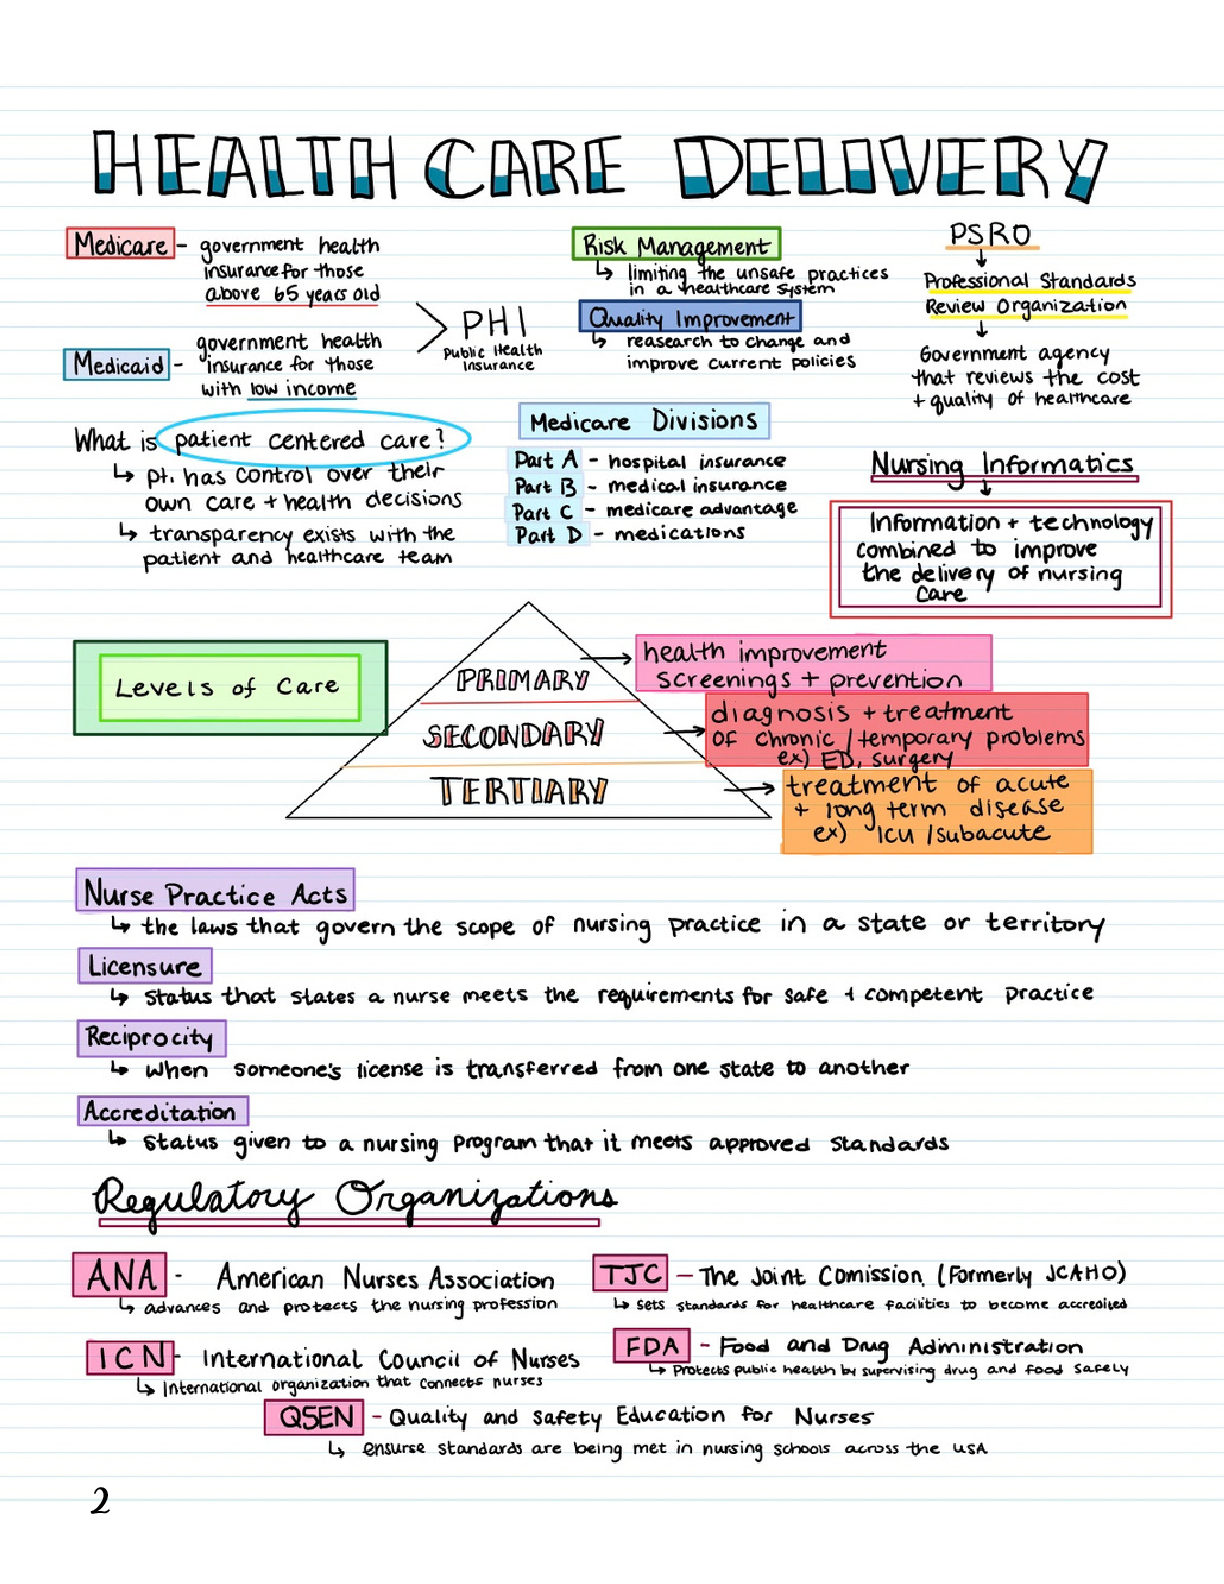 HEALTH CARE DELIVERY
Medicare - government health
insurance for those
above 65 years old
Medicaid - government health
insurance for those
with low income
PHI
Public Health
Insurance
Risk Management
↳ limiting the unsafe practices
in a healthcare system
Quality Improvement
↳ reasearch to change and
improve current policies
PSRO
↓
Professional Standards
Review Organization
↓
Government agency
that reviews the cost
+ quality of healthcare
What is patient centered care?
↳ pt. has control over their
own care + health decisions
↳ transparency exists with the
patient and healthcare team
Medicare Divisions
Part A - hospital insurance
Part B - medical insurance
Part C - medicare advantage
Part D - medications
Nursing Informatics
↓
Information + technology
combined to improve
the delivery of nursing
care
Levels of Care
PRIMARY
→ health improvement
screenings + prevention
SECONDARY
→ diagnosis + treatment
of chronic / temporary problems
ex) ED, surgery
TERTIARY
→ treatment of acute
+ long term disease
ex) ICU / subacute
Nurse Practice Acts
↳ the laws that govern the scope of nursing practice in a state or territory
Licensure
↳ status that states a nurse meets the requirements for safe + competent practice
Reciprocity
↳ when someone's license is transferred from one state to another
Accreditation
↳ status given to a nursing program that it meets approved standards
Regulatory Organizations
ANA - American Nurses Association
↳ advances and protects the nursing profession
TJC - The Joint Comission (Formerly JCAHO)
↳ sets standards for healthcare facilities to become accredited
ICN - International Council of Nurses
↳ International organization that connects nurses
FDA - Food and Drug Administration
↳ Protects public health by supervising drug and food safely
QSEN - Quality and Safety Education for Nurses
↳ ensurse standards are being met in nursing schools across the USA
2